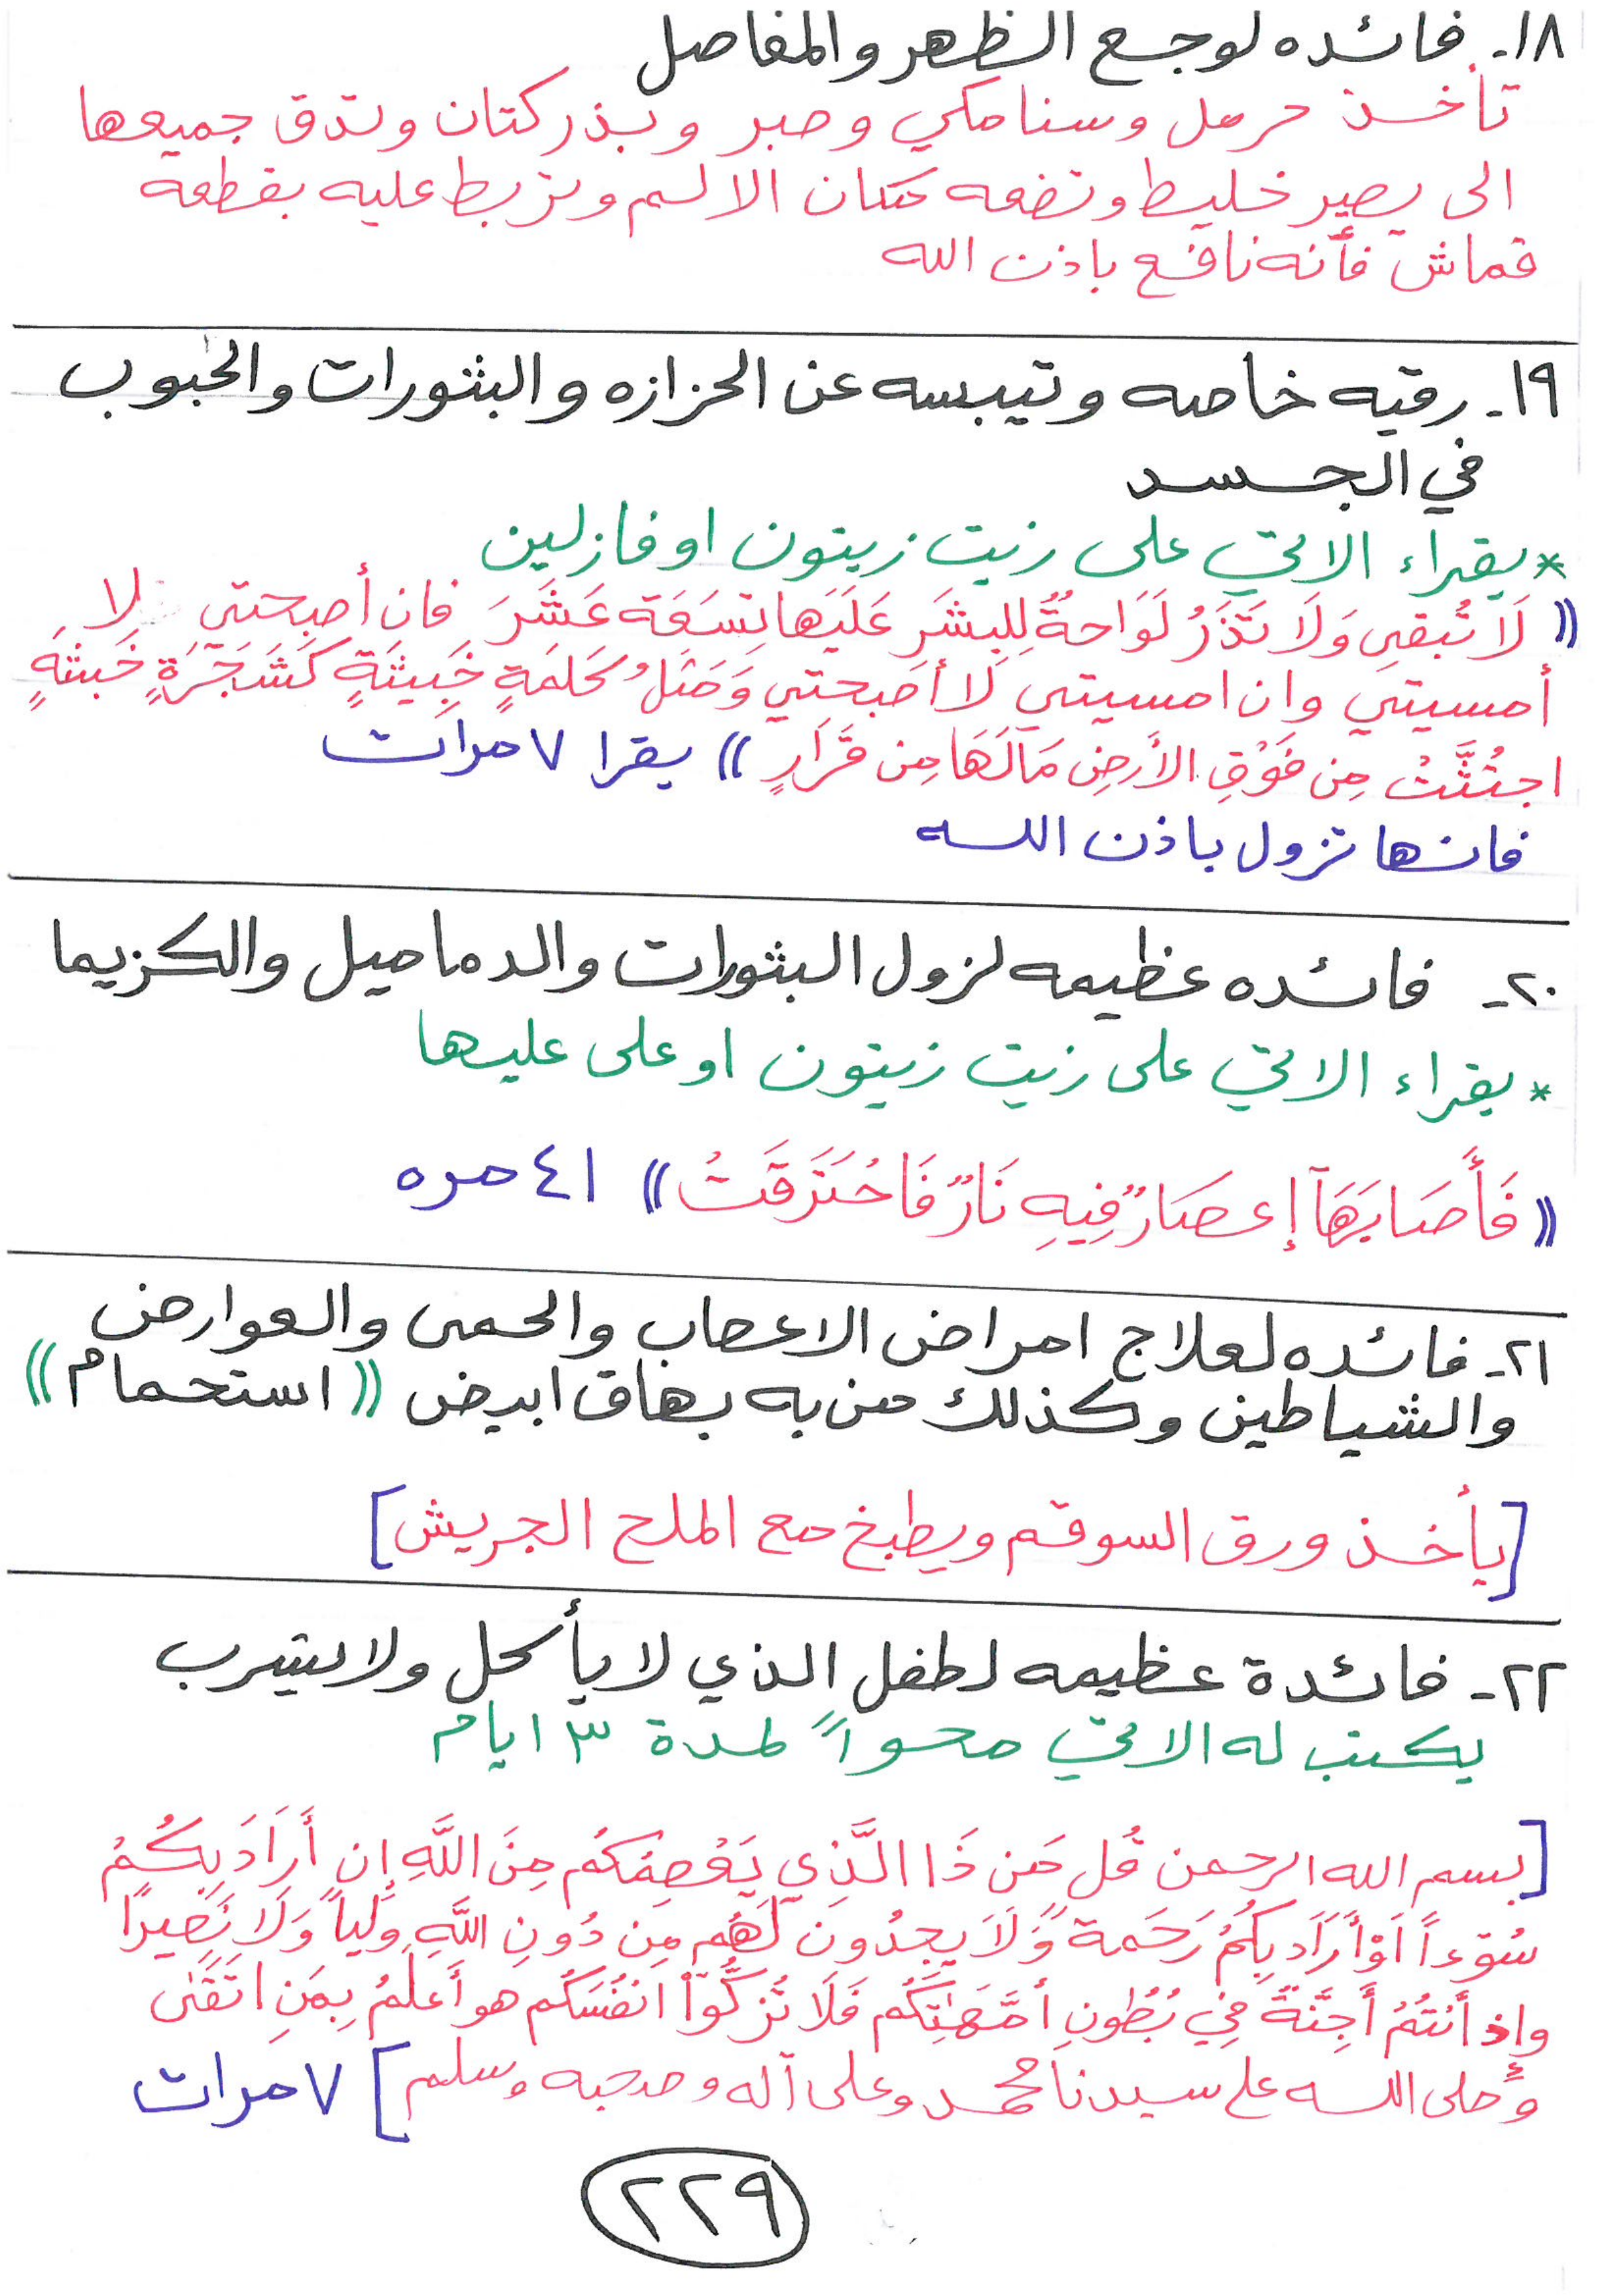 ١٨- فائده لوجع الظهر والمفاصل
تأخذ حرمل وسنامكي وصبر وبذر كتان وتدق جميعها
الى يصير خليط وتضعه مكان الالم وتربط عليه بقطعه
قماش فأنه نافع باذن الله
١٩- رقيه خاصه وتيبسه عن الحزازه والبثورات والحبوب
في الجسد
* يقراء الاتي على زيت زيتون او فازلين
(( لَا تُبقي وَلَا تَذَرُ لَوَاحةٌ لِلبشَرِ عَلَيَها تِسَعَة عَشَرَ فان أصبحتي لا
أمسيتي وان امسيتي لا أصبحتي وَمَثلُ كَلمَةٍ خَبِيثَةٍ كَشَجَرَةٍ خَبيثَةٍ
اجتُثَّتْ مِن فَوْقِ الأَرضِ مَا لَهَا مِن قَرَارٍ )) يقرا ٧ مرات
فانها تزول باذن الله
٢٠- فائده عظيمه لزول البثورات والدماميل والكزيما
* يقراء الاتي على زيت زيتون او على عليها
(( فَأَصَابَهَآ إعصَارٌ فِيهِ نَارٌ فَاحُتَرَقَتْ )) ٤١ مره
٢١- فائده لعلاج امراض الاعصاب والحمى والعوارض
والشياطين وكذلك من به بهاق ابيض (( استحمام ))
[يأخذ ورق السوقم ويطبخ مع الملح الجريش]
٢٢- فائدة عظيمه لطفل الذي لا يأكل ولا يشرب
يكتب له الاتي محواً لمدة ٣ ايام
[بسم الله الرحمن قُل مَن ذَا الَّذِي يَعْصِمُكُم مِنَ اللَّهِ إِن أَرَادَ بِكُمْ
سُوٓءاً أَوْ أَرَادَ بِكُمُ رَحَمة وَلَا يجِدُونَ لَهُم مِن دُونِ اللَّهِ وَلياً وَلَا نَصِيرًا
وإذ أَنتُمُ أَجِنَّةٌ فِي بُطُونِ أُمَّهَٰتِكُم فَلَا تُزكُّوٓا انفُسَكُم هو أَعلَمُ بِمَنِ اتَقَىٰ
وصلى الله على سيدنا محمد وعلى آله وصحبه وسلم] ٧ مرات
٢٢٩